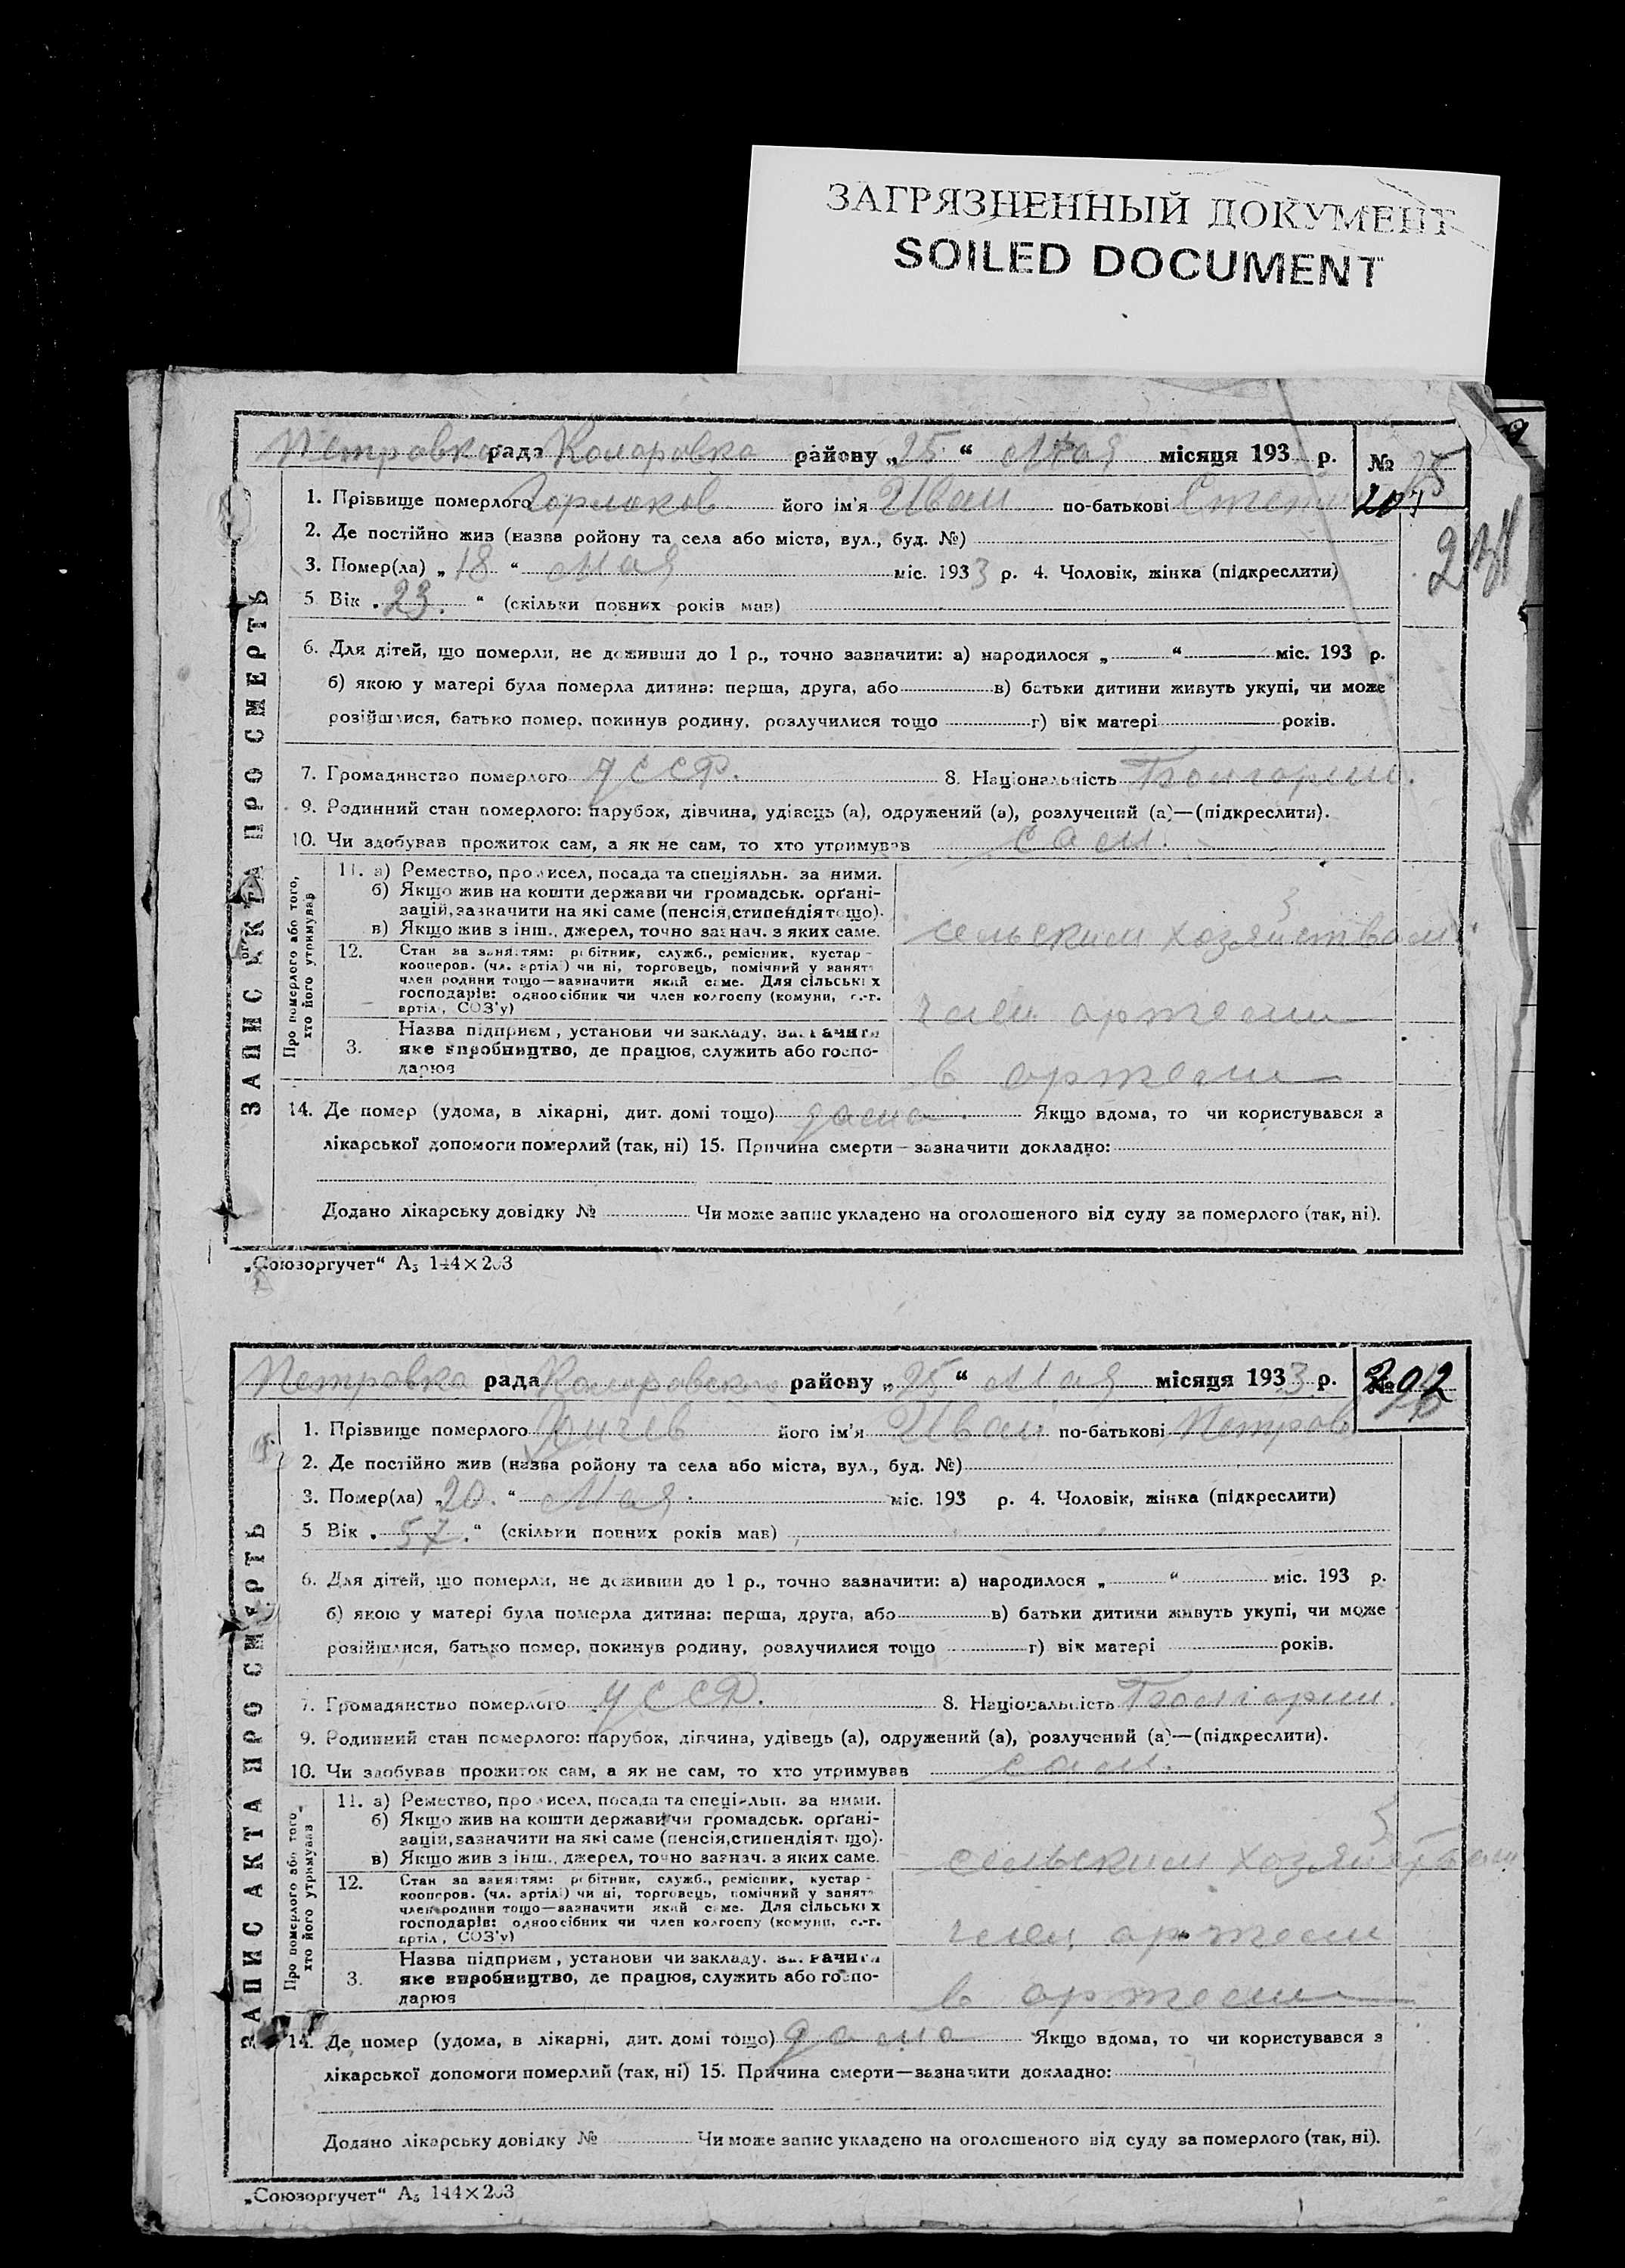 ЗАГРЯЗНЕННЫЙ ДОКУМЕНТ
SOILED DOCUMENT
Петровка рада Коларовка району „ 25 “ Мая місяця 193 р. № 25
201
1. Прізвище померлого його ім'я Иван по-батькові
2. Де постійно жив (назва ройону та села або міста, вул., буд. №)
3. Помер(ла) „ 18 “ Мая міс. 1933 р. 4. Чоловік, жінка (підкреслити)
5 Вік „ 23. “ (скільки повних років мав)
6. Для дітей, що померли, не доживши до 1 р., точно зазначити: а) народилося „ “ міс. 193 р.
б) якою у матері була померла дитина: перша, друга, або в) батьки дитини живуть укупі, чи може
розійшлися, батько помер, покинув родину, розлучилися тощо г) вік матері років.
7. Громадянство померлого УССР. 8. Національність Болгарин.
9. Родинний стан померлого: парубок, дівчина, удівець (а), одружений (а), розлучений (а)—(підкреслити).
10. Чи здобував прожиток сам, а як не сам, то хто утримував сам.
ЗАПИС АКТА ПРО СМЕРТЬ
Про померлого або того,
хто його утримував
11. а) Ремество, промисел, посада та спеціяльн. за ними.
б) Якщо жив на кошти держави чи громадськ. орґані-
зацій, зазначити на які саме (пенсія, стипендія тощо).
в) Якщо жив з інш., джерел, точно зазнач. з яких саме.
сельским хозяйством
12. Стан за заняттям: робітник, служб., ремісник, кустар-
кооперов. (чл. артілі) чи ні, торговець, помічний у занятт
член родини тощо—зазначити який саме. Для сільських
господарів: одноосібник чи член колгоспу (комуни, с.-г.
артіл, СОЗ'у)
член артели
3. Назва підприєм, установи чи закладу, зазначити
яке виробництво, де працює, служить або госпо-
дарює
в артели
14. Де помер (удома, в лікарні, дит. домі тощо) дома. Якщо вдома, то чи користувався з
лікарської допомоги померлий (так, ні) 15. Причина смерти—зазначити докладно:
Додано лікарську довідку № Чи може запис укладено на оголошеного від суду за померлого (так, ні).
„Союзоргучет“ А₅ 144×203
Петровка рада Коларовский району „ 25 “ Мая місяця 1933 р. № 202
1. Прізвище померлого його ім'я Иван по-батькові Петров
2. Де постійно жив (назва ройону та села або міста, вул., буд. №)
3. Помер(ла) „ 20. “ Мая. міс. 193 р. 4. Чоловік, жінка (підкреслити)
5 Вік „ 57. “ (скільки повних років мав)
6. Для дітей, що померли, не доживши до 1 р., точно зазначити: а) народилося „ “ міс. 193 р.
б) якою у матері була померла дитина: перша, друга, або в) батьки дитини живуть укупі, чи може
розійшлися, батько помер, покинув родину, розлучилися тощо г) вік матері років.
7. Громадянство померлого УССР. 8. Національність Болгарин.
9. Родинний стан померлого: парубок, дівчина, удівець (а), одружений (а), розлучений (а)—(підкреслити).
10. Чи здобував прожиток сам, а як не сам, то хто утримував сам.
ЗАПИС АКТА ПРО СМЕРТЬ
Про померлого або того,
хто його утримував
11. а) Ремество, промисел, посада та спеціяльн. за ними.
б) Якщо жив на кошти держави чи громадськ. орґані-
зацій, зазначити на які саме (пенсія, стипендія тощо).
в) Якщо жив з інш., джерел, точно зазнач. з яких саме.
сельским хозяйством
12. Стан за заняттям: робітник, служб., ремісник, кустар-
кооперов. (чл. артілі) чи ні, торговець, помічний у занятт
член родини тощо—зазначити який саме. Для сільських
господарів: одноосібник чи член колгоспу (комуни, с.-г.
артіл, СОЗ'у)
член артели
3. Назва підприєм, установи чи закладу, зазначити
яке виробництво, де працює, служить або госпо-
дарює
в артели
14. Де помер (удома, в лікарні, дит. домі тощо) дома Якщо вдома, то чи користувався з
лікарської допомоги померлий (так, ні) 15. Причина смерти—зазначити докладно:
Додано лікарську довідку № Чи може запис укладено на оголошеного від суду за померлого (так, ні).
„Союзоргучет“ А₅ 144×203